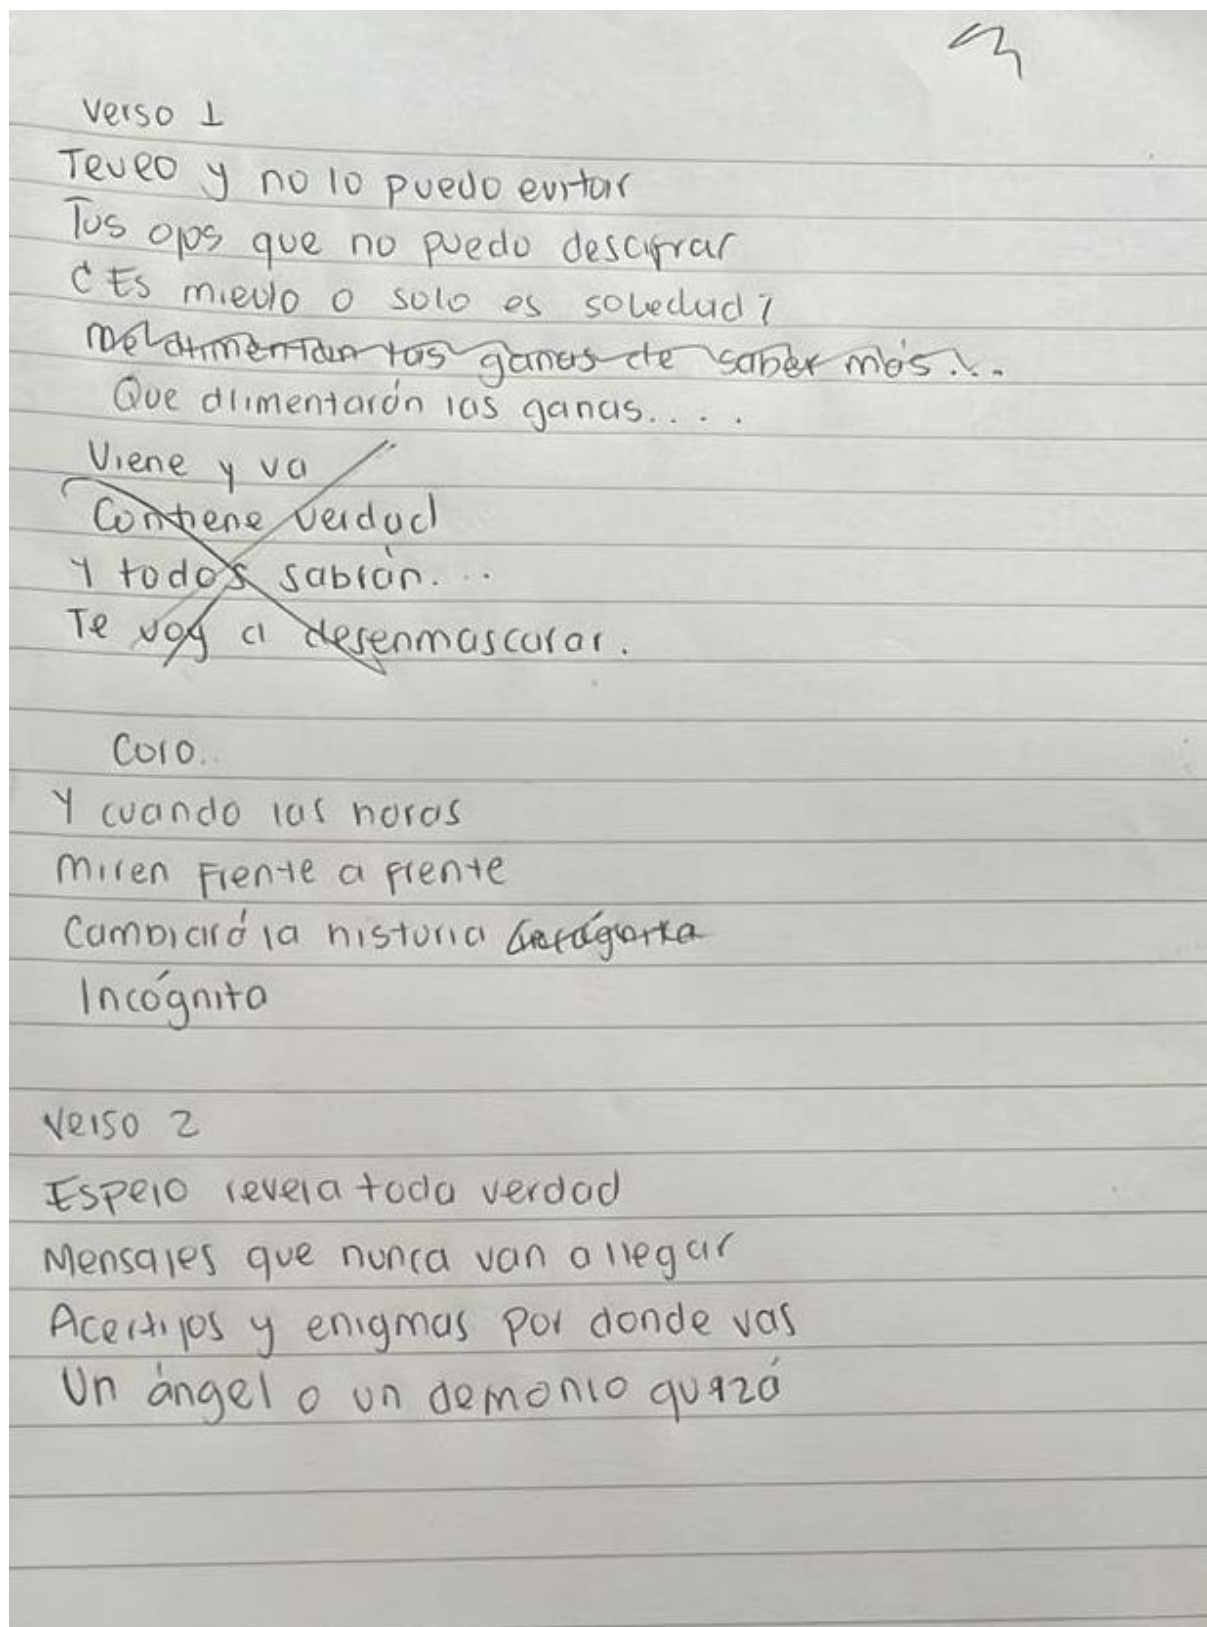 Verso 1
Te veo y no lo puedo evitar
Tus ojos que no puedo descifrar
¿Es miedo o solo es soledad?
Me alimentan las ganas de saber más...
Que alimentarán las ganas....
Viene y va
Contiene verdad
Y todos sabrán...
Te voy a desenmascarar.
Coro..
Y cuando las horas
Miren Frente a frente
Cambiará la historia
Incógnita
Verso 2
Espejo revela toda verdad
Mensajes que nunca van a llegar
Acertijos y enigmas por donde vas
Un ángel o un demonio quizá